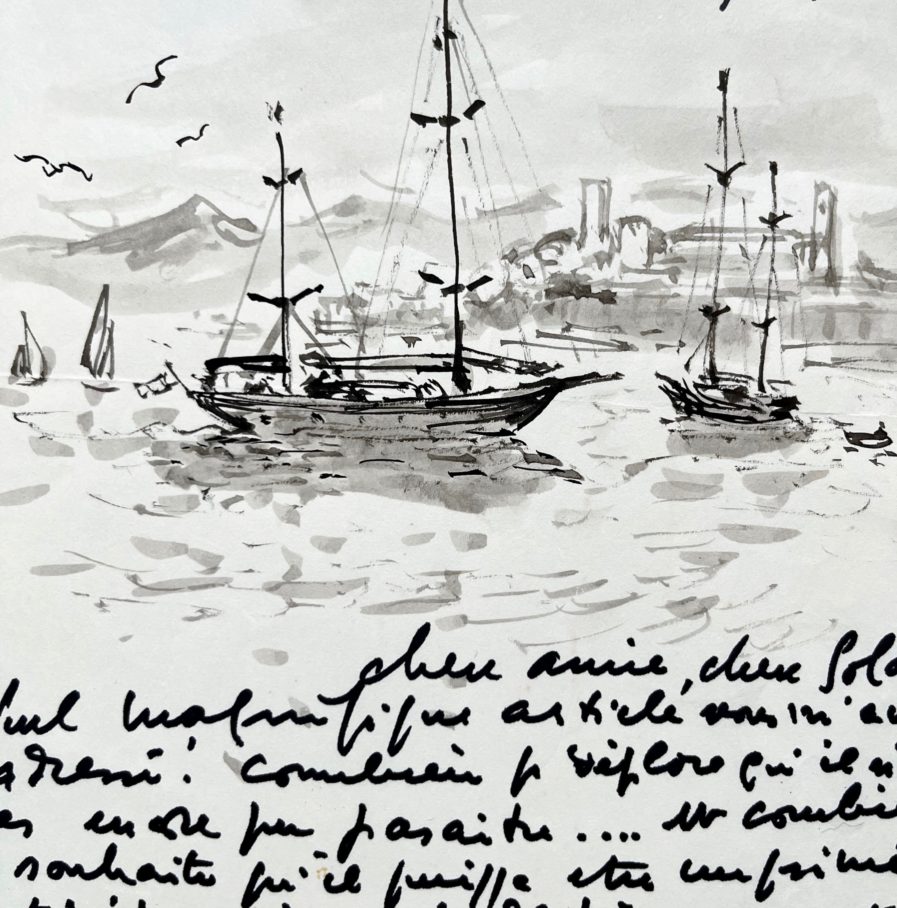 chère amie, chère Sola
quel magnifique article vous m'av
adressé ! Combien je déplore qu'il n'
encore pu paraitre .... et combie
souhaite qu'il puisse etre imprimé